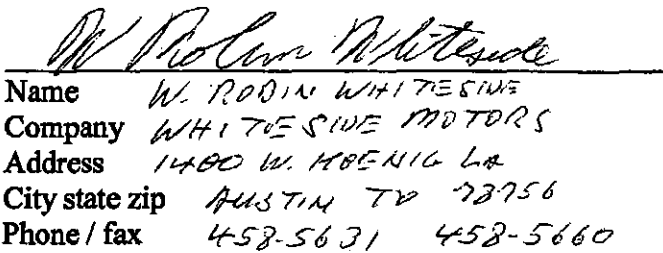 W Robin Whiteside
Name W. ROBIN WHITESIDE
Company WHITESIDE MOTORS
Address 1400 W. KOENIG LN
City state zip AUSTIN TX 78756
Phone / fax 458-5631 458-5660